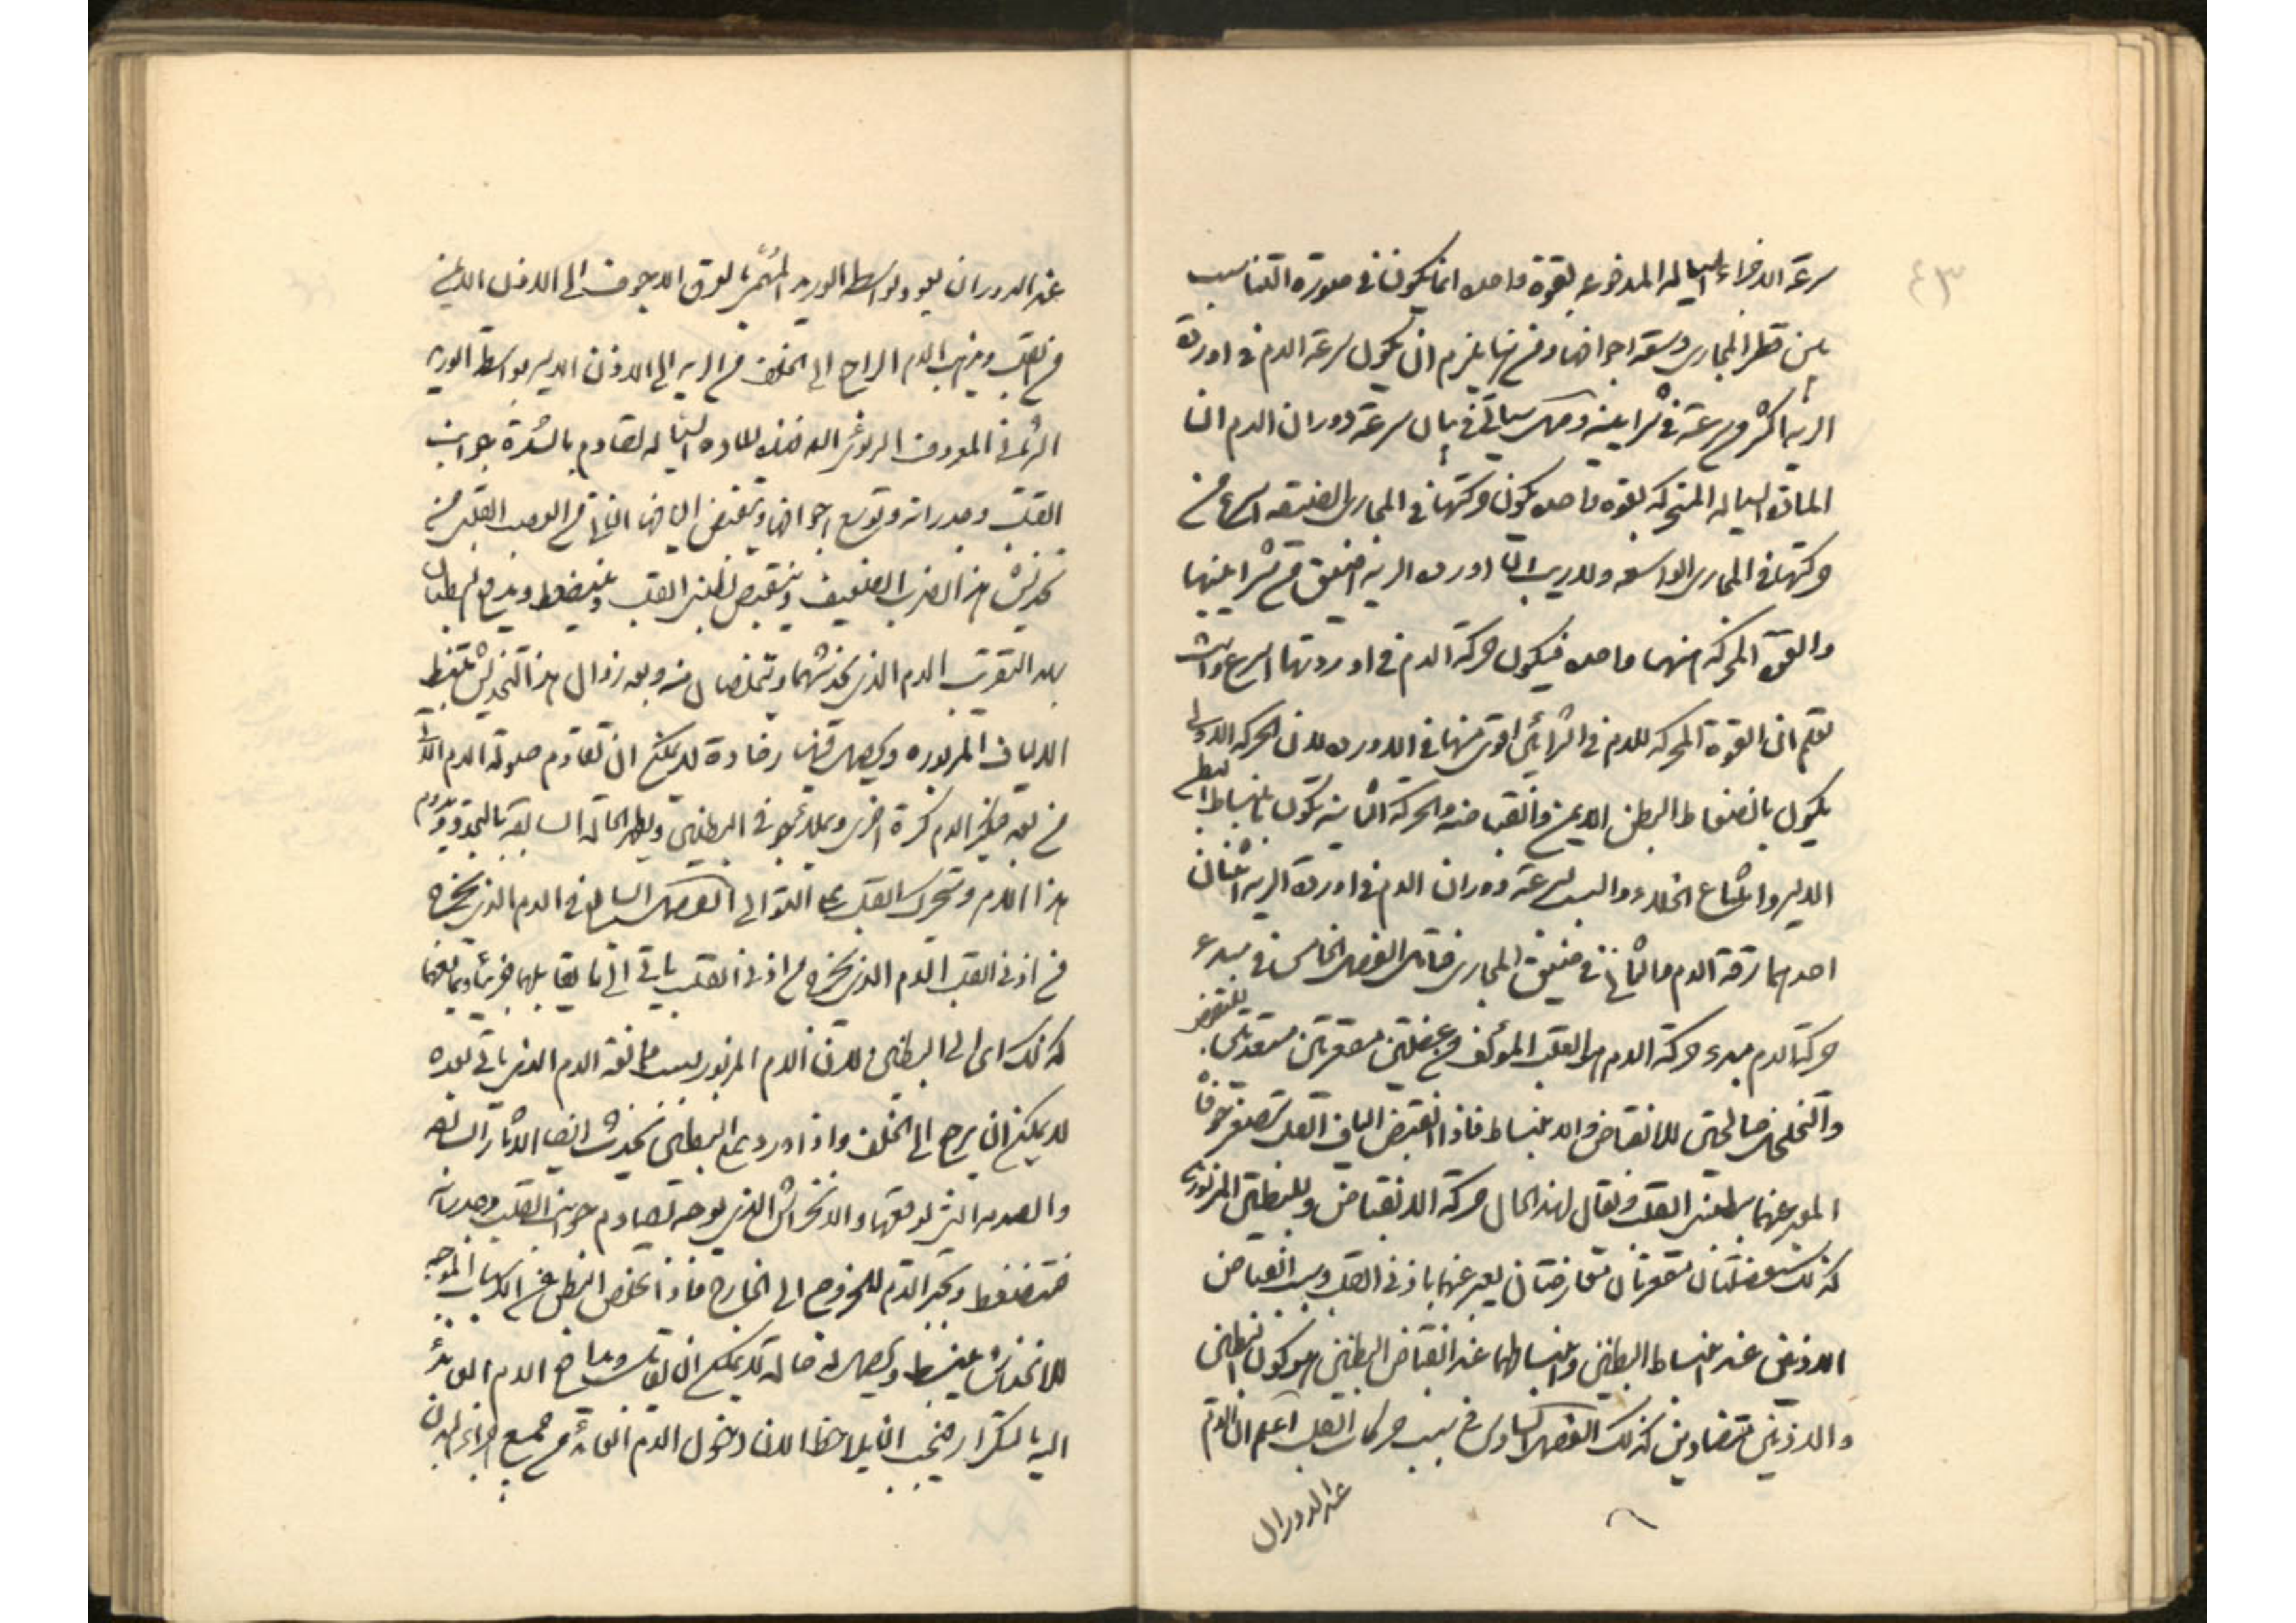 ٤٣
سرعة الاجزاء السيالة المدفوعة بقوة واحدة انما يكون في صورة التناسب
بين قطر المجاري وسعة اجوافها ومن ثم يلزم ان يكون سرعة الدم في اوردة
الرية اكثر من سرعته في شرايينه وسيأتي في بيان سرعة دوران الدم ان
المادة السيالة المتحركة بقوة واحدة يكون حركتها في المجاري الضيقة اسرع من
حركتها في المجاري الواسعة ولا ريب ان اوردة الرية اضيق من شرايينها
والقوة المحركة منهما واحدة فيكون حركة الدم في اوردتها اسرع وانت
تعلم ان القوة المحركة للدم في الشرايين اقوى منها في الاوردة لان الحركة الاولى
يكون بانضغاط البطن الايمن وانقباضه والحركة الثانية تكون بانبساط البطن
الايسر وامتناع الخلاء والسبب لسرعة دوران الدم في اوردة الرية اثنان
احدهما رقة الدم والثاني ضيق المجاري الفصل الخامس في مبدء
حركة الدم مبدء حركة الدم هو القلب المؤلف من عضلتين مقعرتين مستعدتين للتقبض
والتخلخل صالحتين للانقباض والانبساط فاذا انقبض الياف القلب تصغر جوفا
المعبر عنهما ببطيني القلب ويقال لهذا الحال حركة الانقباض وللبطنين المزبورين
كذلك عضلتان مقعرتان متعارضتان يعبر عنهما باذني القلب وسبب انقباض
الاذنين عند انبساط البطنين وانبساطهما عند انقباض البطنين هو كون البطنين
والاذنين متضادين كذلك الفصل السادس في سبب حركات القلب اعلم ان الدم
عند الدوران
عند الدوران يعود بواسطة الوريد المسمى بالعرق الاجوف الى الاذن الايمن
من القلب ويذهب الدم الراجع الى الخلف من الرية الى الاذن الايسر بواسطة الوريد
الشرياني المعروف الرئوي لان هذه المادة السيالة تصادم بالشدة جوانب
القلب وجدرانه وتوسع اجوافها وتقبض اليافها الناتج من العصب القلبي من
تخديش هذا الضرب الضعيف وينقبض بطني القلب وينضغط ويدفع البطنان
بهذا التقريب الدم الذي يخدشهما ويتخلصان منه وبعد زوال هذا التخديش تنبسط
الالياف المزبورة ويحصل فيها رخاوة لا يمكن ان تقاوم صولة الدم الآتي
من بعد فيكر الدم كرة اخرى ويملأ جوفي البطنين ويظهر الحالة السابقة بالتجدد ويدوم
هذا اللزوم ويتحرك القلب على التوالي الفصل السابع في الدم الذي يخرج
من اذني القلب الدم الذي يخرج من اذني القلب يأتي الى ما يقابلهما
كذلك اي الى البطنين لان الدم المزبور بسبب ممانعة الدم الذي يأتي بعده
لا يمكن ان يرجع الى الخلف واذا ورد على البطنين تحدث ايضا الآثار السابقة
والصدمة التي توقعها والانخداش الذي يوجد تصادم جوانب القلب وجدرانه
فتنضغط وتجبر الدم للخروج الى الخارج فاذا تخلص البطن عن الاسباب الموجبة
للانخداش ينبسط ويحصل له حالة لا يمكن ان تقابل الدم العائد
اليه بالتكرار فيجب ان يلاحظ الان دخول الدم العائد من جميع اجزاء البدن